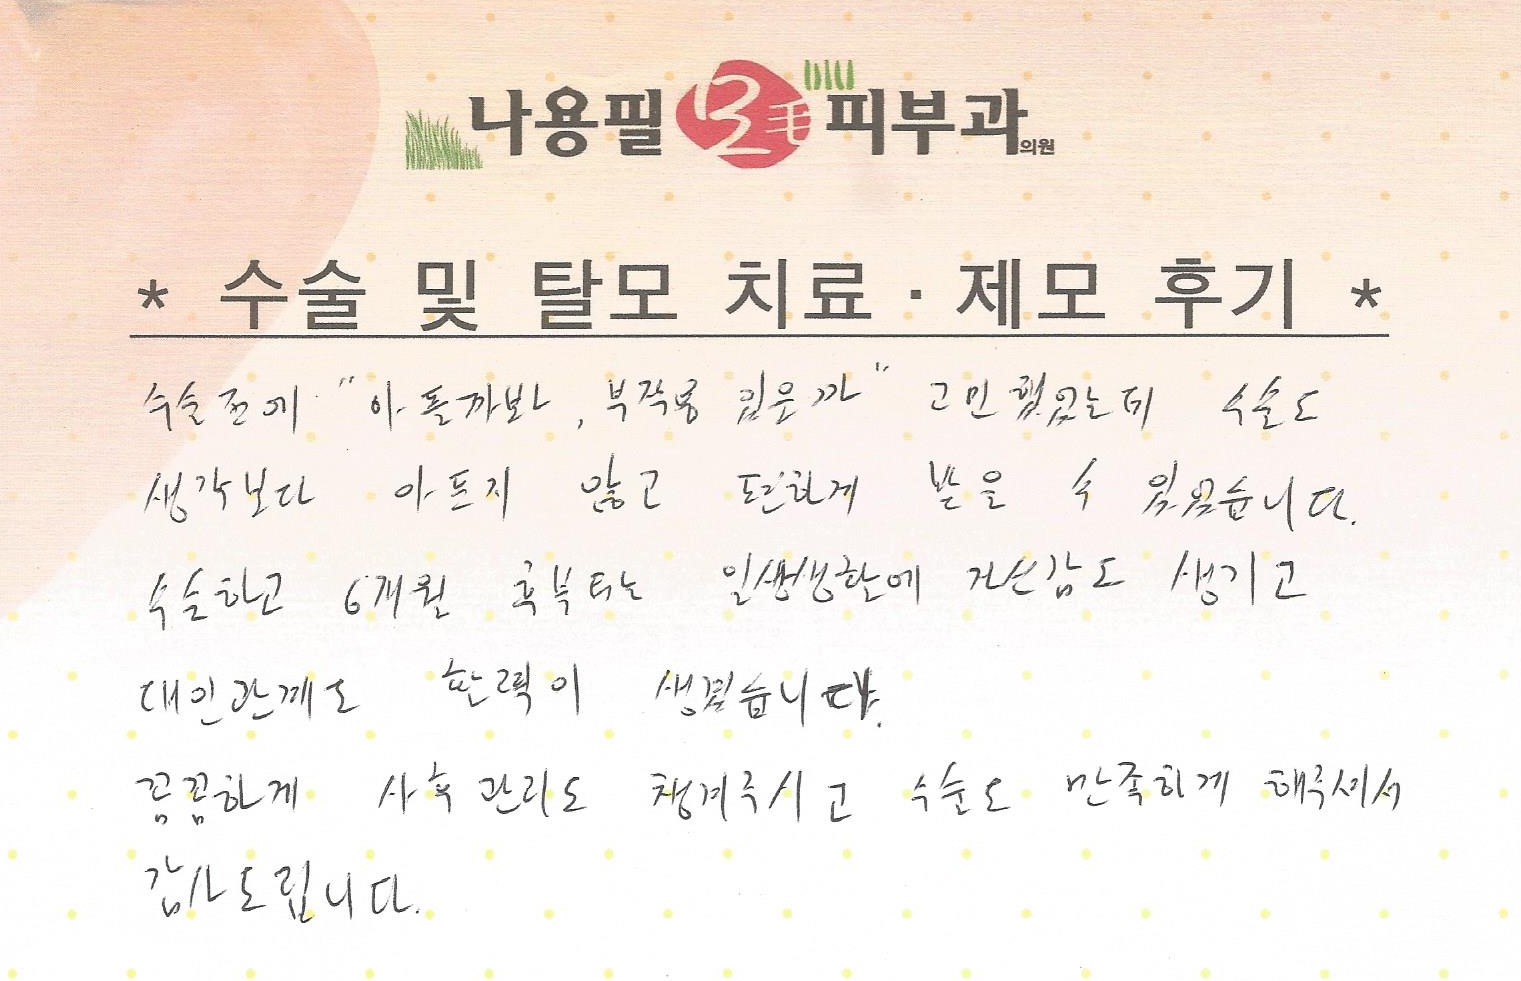 나용필 모毛 피부과의원
* 수술 및 탈모 치료 · 제모 후기 *
수술전에 "아플까봐, 부작용 있을까" 고민했었는데 수술도
생각보다 아프지 않고 편하게 받을 수 있었습니다.
수술하고 6개월 후부터는 일생생활에 자신감도 생기고
대인관계도 활력이 생겼습니다.
꼼꼼하게 사후관리도 챙겨주시고 수술도 만족하게 해주셔서
감사드립니다.